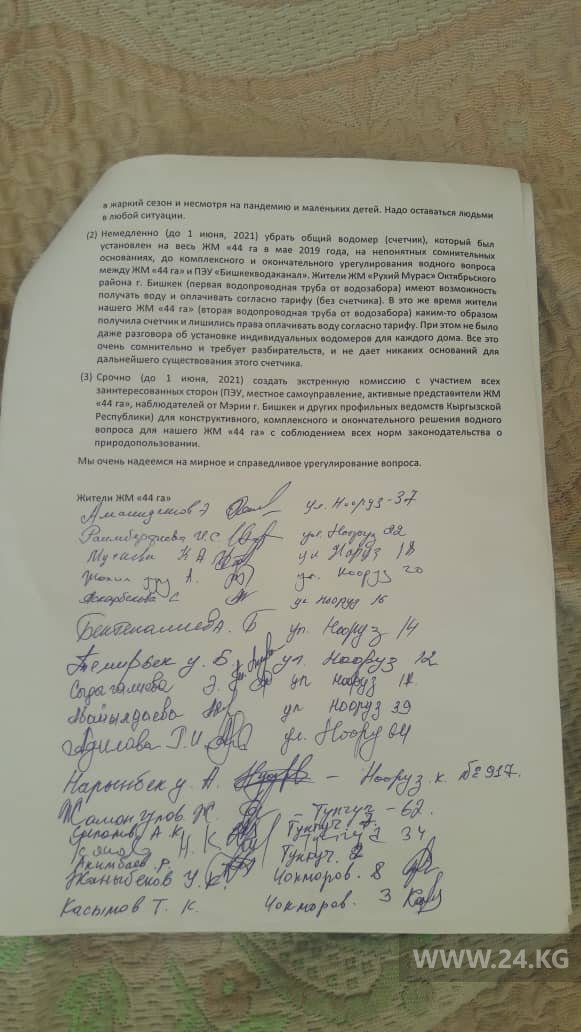 в жаркий сезон и несмотря на пандемию и маленьких детей. Надо оставаться людьми
в любой ситуации.
(2) Немедленно (до 1 июня, 2021) убрать общий водомер (счетчик), который был
установлен на весь ЖМ «44 га в мае 2019 года, на непонятных сомнительных
основаниях, до комплексного и окончательного урегулирования водного вопроса
между ЖМ «44 га» и ПЭУ «Бишкекводаканал». Жители ЖМ «Рухий Мурас» Октябрьского
района г. Бишкек (первая водопроводная труба от водозабора) имеют возможность
получать воду и оплачивать согласно тарифу (без счетчика). В это же время жители
нашего ЖМ «44 га» (вторая водопроводная труба от водозабора) каким-то образом
получила счетчик и лишились права оплачивать воду согласно тарифу. При этом не было
даже разговора об установке индивидуальных водомеров для каждого дома. Все это
очень сомнительно и требует разбирательств, и не дает никаких оснований для
дальнейшего существования этого счетчика.
(3) Срочно (до 1 июня, 2021) создать экстренную комиссию с участием всех
заинтересованных сторон (ПЭУ, местное самоуправление, активные представители ЖМ
«44 га», наблюдателей от Мэрии г. Бишкек и других профильных ведомств Кыргызской
Республики) для конструктивного, комплексного и окончательного решения водного
вопроса для нашего ЖМ «44 га» с соблюдением всех норм законодательства о
природопользовании.
Мы очень надеемся на мирное и справедливое урегулирование вопроса.
Жители ЖМ «44 га»
ул. Нооруз-37
ул. Нооруз 22
К. А. ул Норуз 18
А. ул. Нооруз 20
Аскарбекова С ул Нооруз 16
Б ул. Нооруз 14
Темирбек у. Б ул. Нооруз 12
Сыдыгалиева Э. ул Нооруз 12.
ул Нооруз 39
Адилова Г. И ул. Нооруз 04
Нарынбек у. А. – Нооруз. к. № 917.
Жамангулов Ж. – Тунгуч – 62.
А. К. Тунгуч
Н. К. Тунгуч 34
Акимбаев Р. Тунгуч.
Жаныбеков У. К. Чокморов. 8
Касымов Т. К. Чокморов. 3
WWW.24.KG